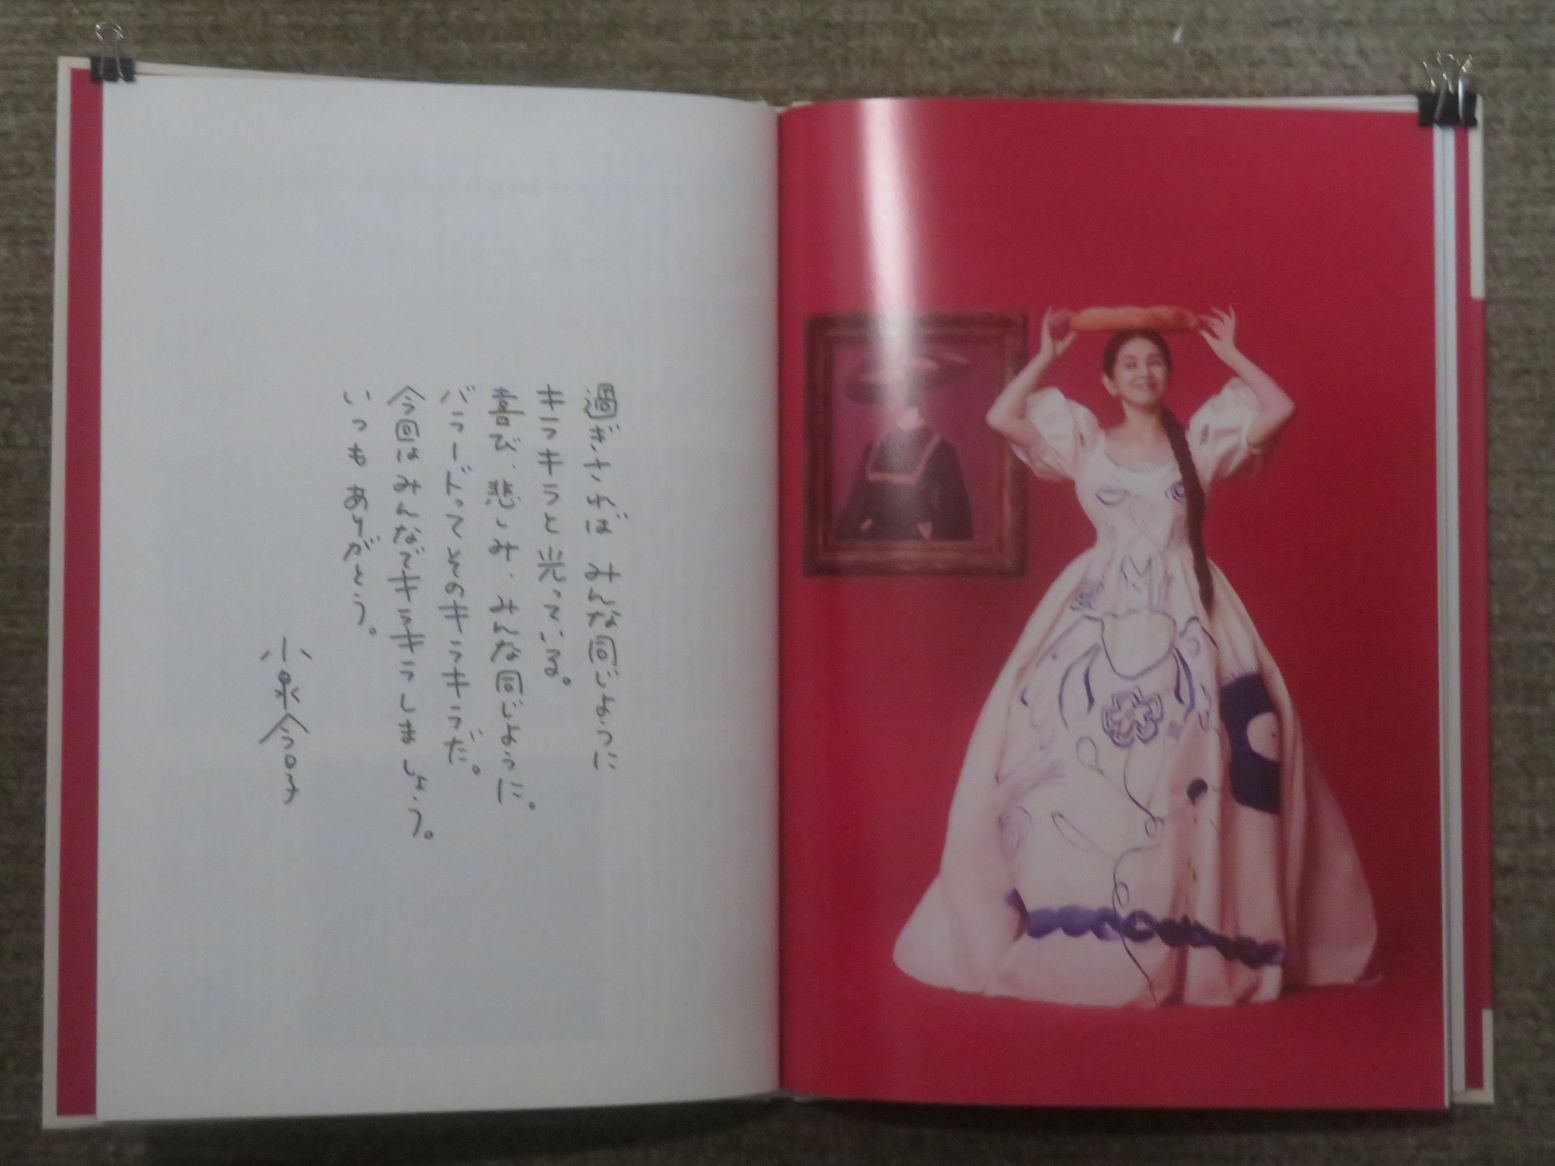 過ぎされば みんな同じように
キラキラと光っている。
喜び、悲しみ、みんな同じように。
バラードってそのキラキラだ。
今回はみんなでキラキラしましょう。
いつもありがとう。
小泉今日子